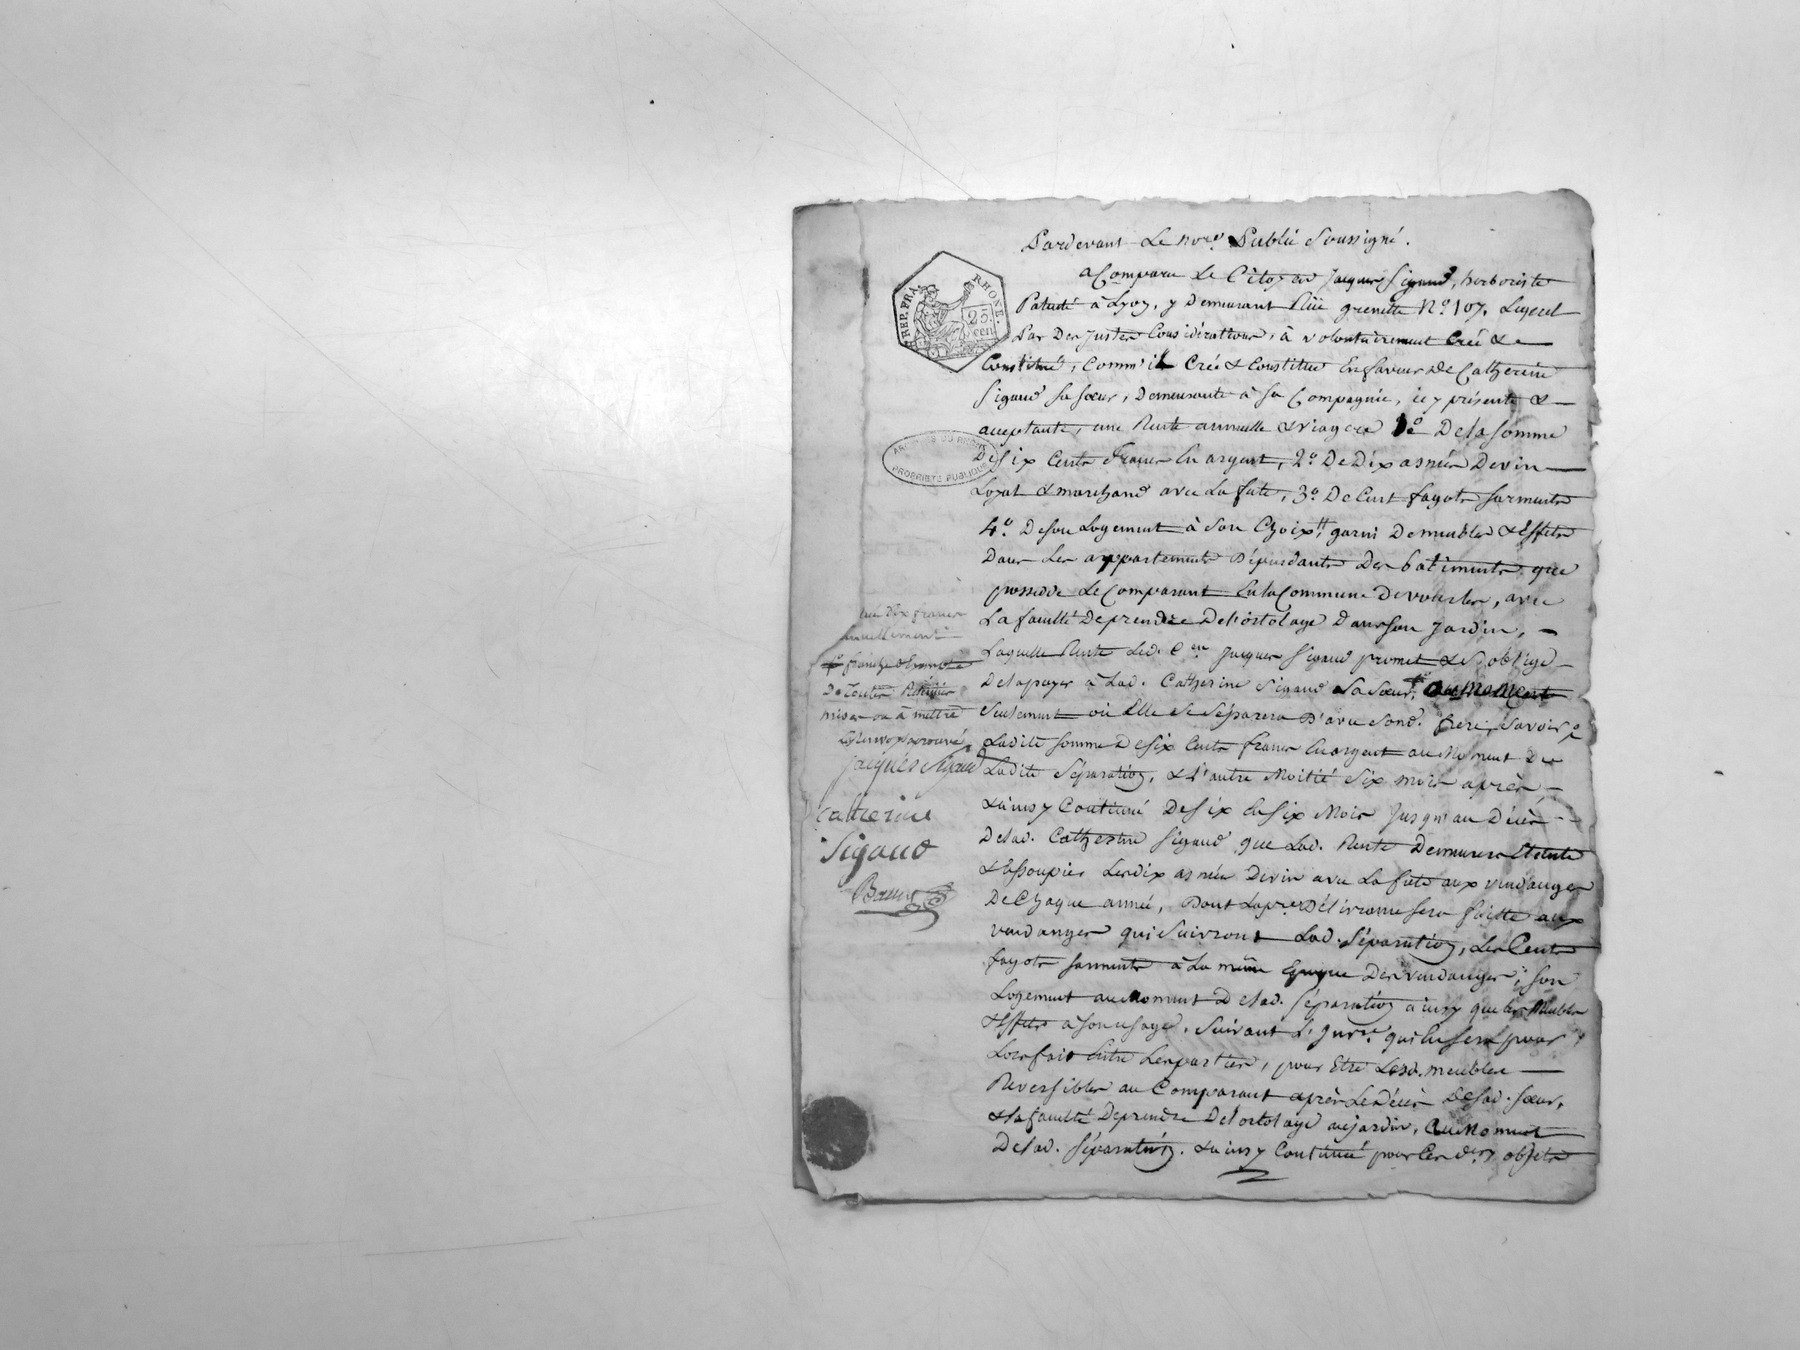 Pardevant Le no.re Public Soussigné.
a Comparu Le Citoyen Jacques Sigaud, herboriste
Patenté à Lyon, y Demeurant Rüe grenette N.o 107. Lequel
Par Des justes Considérations, à volontairement Créé &
Constitué, Comm'il Créé & Constitue En faveur de Catherine
Sigaud Sa Sœur, Demeurante à Sa Compagnie, icy présente &
acceptante, une Rente annuelle & viagere 1.o De la Somme
De six Cents francs En argent, 2.o De Dix asnées De vin
Loyal & marchand avec La futte, 3.o De Cent fagots Sarments
4.o De son Logement à Son Choix, garni De meubles & Effets
Dans Les appartements Dépendants Des batiments que
possede Le Comparant En la Commune De vourles, avec
La faculté De prendre De l'ortolage Dans son Jardin,
Laquelle Rente Led. C.en Jacques Sigaud promet & S'oblige
De la payer à Lad. Catherine Sigaud Sa Sœur, au moment
Seulement où Elle Se Séparera D'avec Sond. frere, Savoir
Ladite Somme De six Cents francs En argent au Moment De
Ladite Séparation, & L'autre Moitié Six mois après
& ainsy Continué De six En six Mois Jusqu'au Décès
De lad. Catherine Sigaud, que Lad. Rente Demeurera Eteinte
& assoupie, Les dix asnées De vin avec La futte aux vendanges
De Chaque année, Dont La pre. Délivrance Sera faitte aux
vendanges qui Suivront Lad. Séparation, Les Cents
fagots Sarments à La même Epoque Des vendanges, Son
Logement au Moment De lad. Séparation ainsy que les Meubles
& Effets a Son usage, Suivant L'Inv.re qui En Sera pour
Lors fait Entre Les parties, pour Etre Lesd. meubles
Reversibles au Comparant après Le Décès De Sad. Sœur,
& La faculté De prendre De l'ortolage au jardin, au Moment
De lad. Séparation. & ainsy Continué pour Ces d.ers objets
dix francs
annuellement
franche & Exempte
De Toutes Retenues
mises ou à mettre
Renvoy aprouvé
Jacques Sigaud
Catherine
Sigaud
REP. FRA.
RHONE.
25 cen
ARCHIVES DU RHONE
PROPRIETE PUBLIQUE